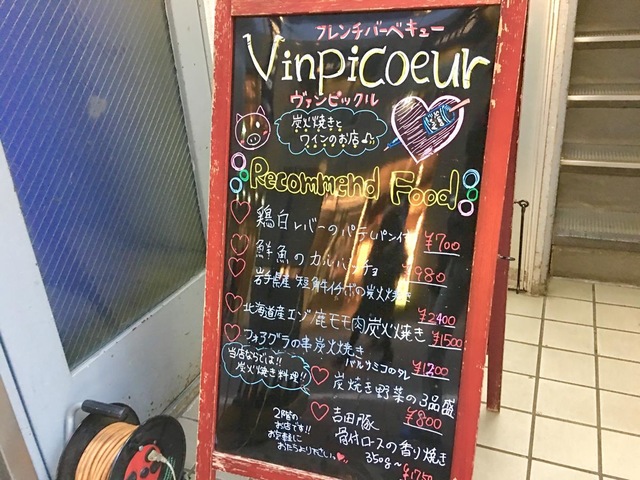 フレンチバーベキュー
Vinpicoeur
ヴァンピックル
炭火焼きと
ワインのお店♫
Recommend Food
鶏白レバーのパテ(パン付 ¥700
鮮魚のカルパッチョ ¥980
岩手県産 短角牛イチボの炭火焼き ¥2400
北海道産エゾ鹿モモ肉炭火焼き ¥1500
フォアグラの串炭火焼き
バルサミコのタレ ¥1200
当店ならでは!!
炭火焼き料理!!
炭焼き野菜の3品盛 ¥800
吉田豚
骨付ロースの香り焼き
350g～ ¥1750
2階の
お店です!!
お気軽に
お立ちより下さい。